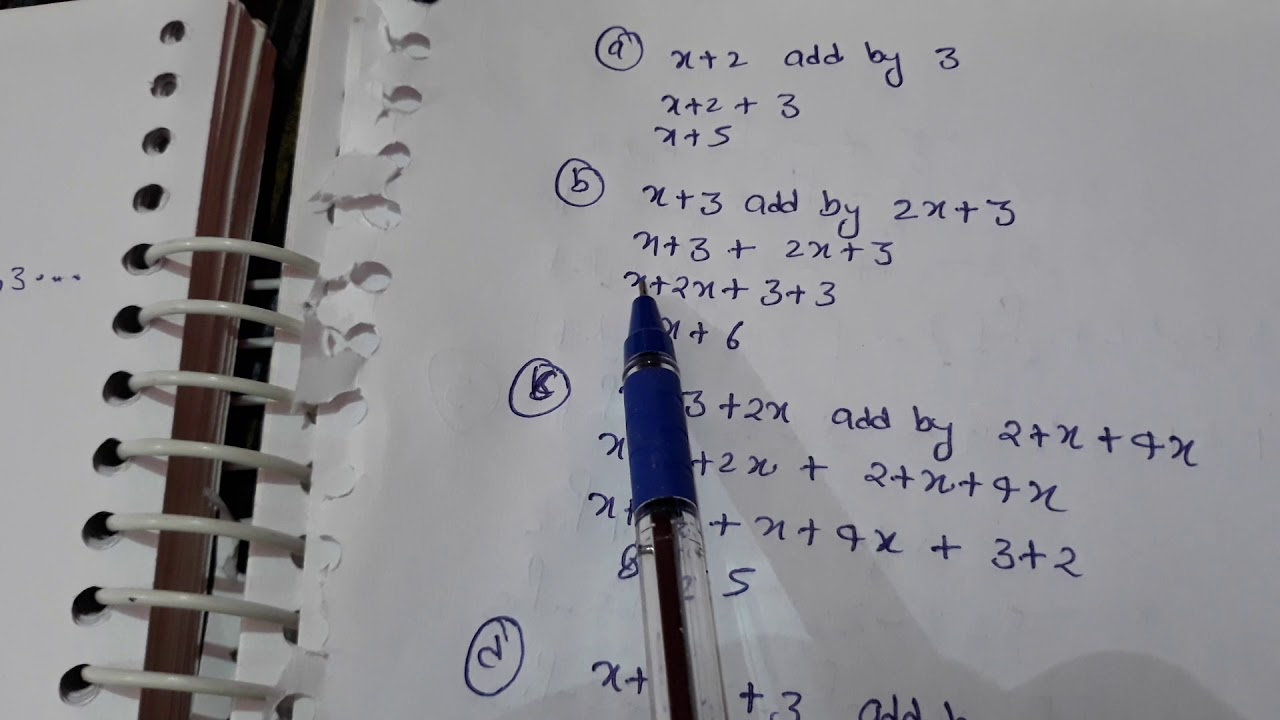 ,3....
(a) x+2 add by 3
x+2 + 3
x+5
(b) x+3 add by 2x+3
x+3 + 2x+3
x+2x+ 3+3
x+ 6
(c) 3 +2x add by 2+x+4x
x +2x + 2+x+4x
x+ + x+4x + 3+2
8 5
(d) x+ +3 add